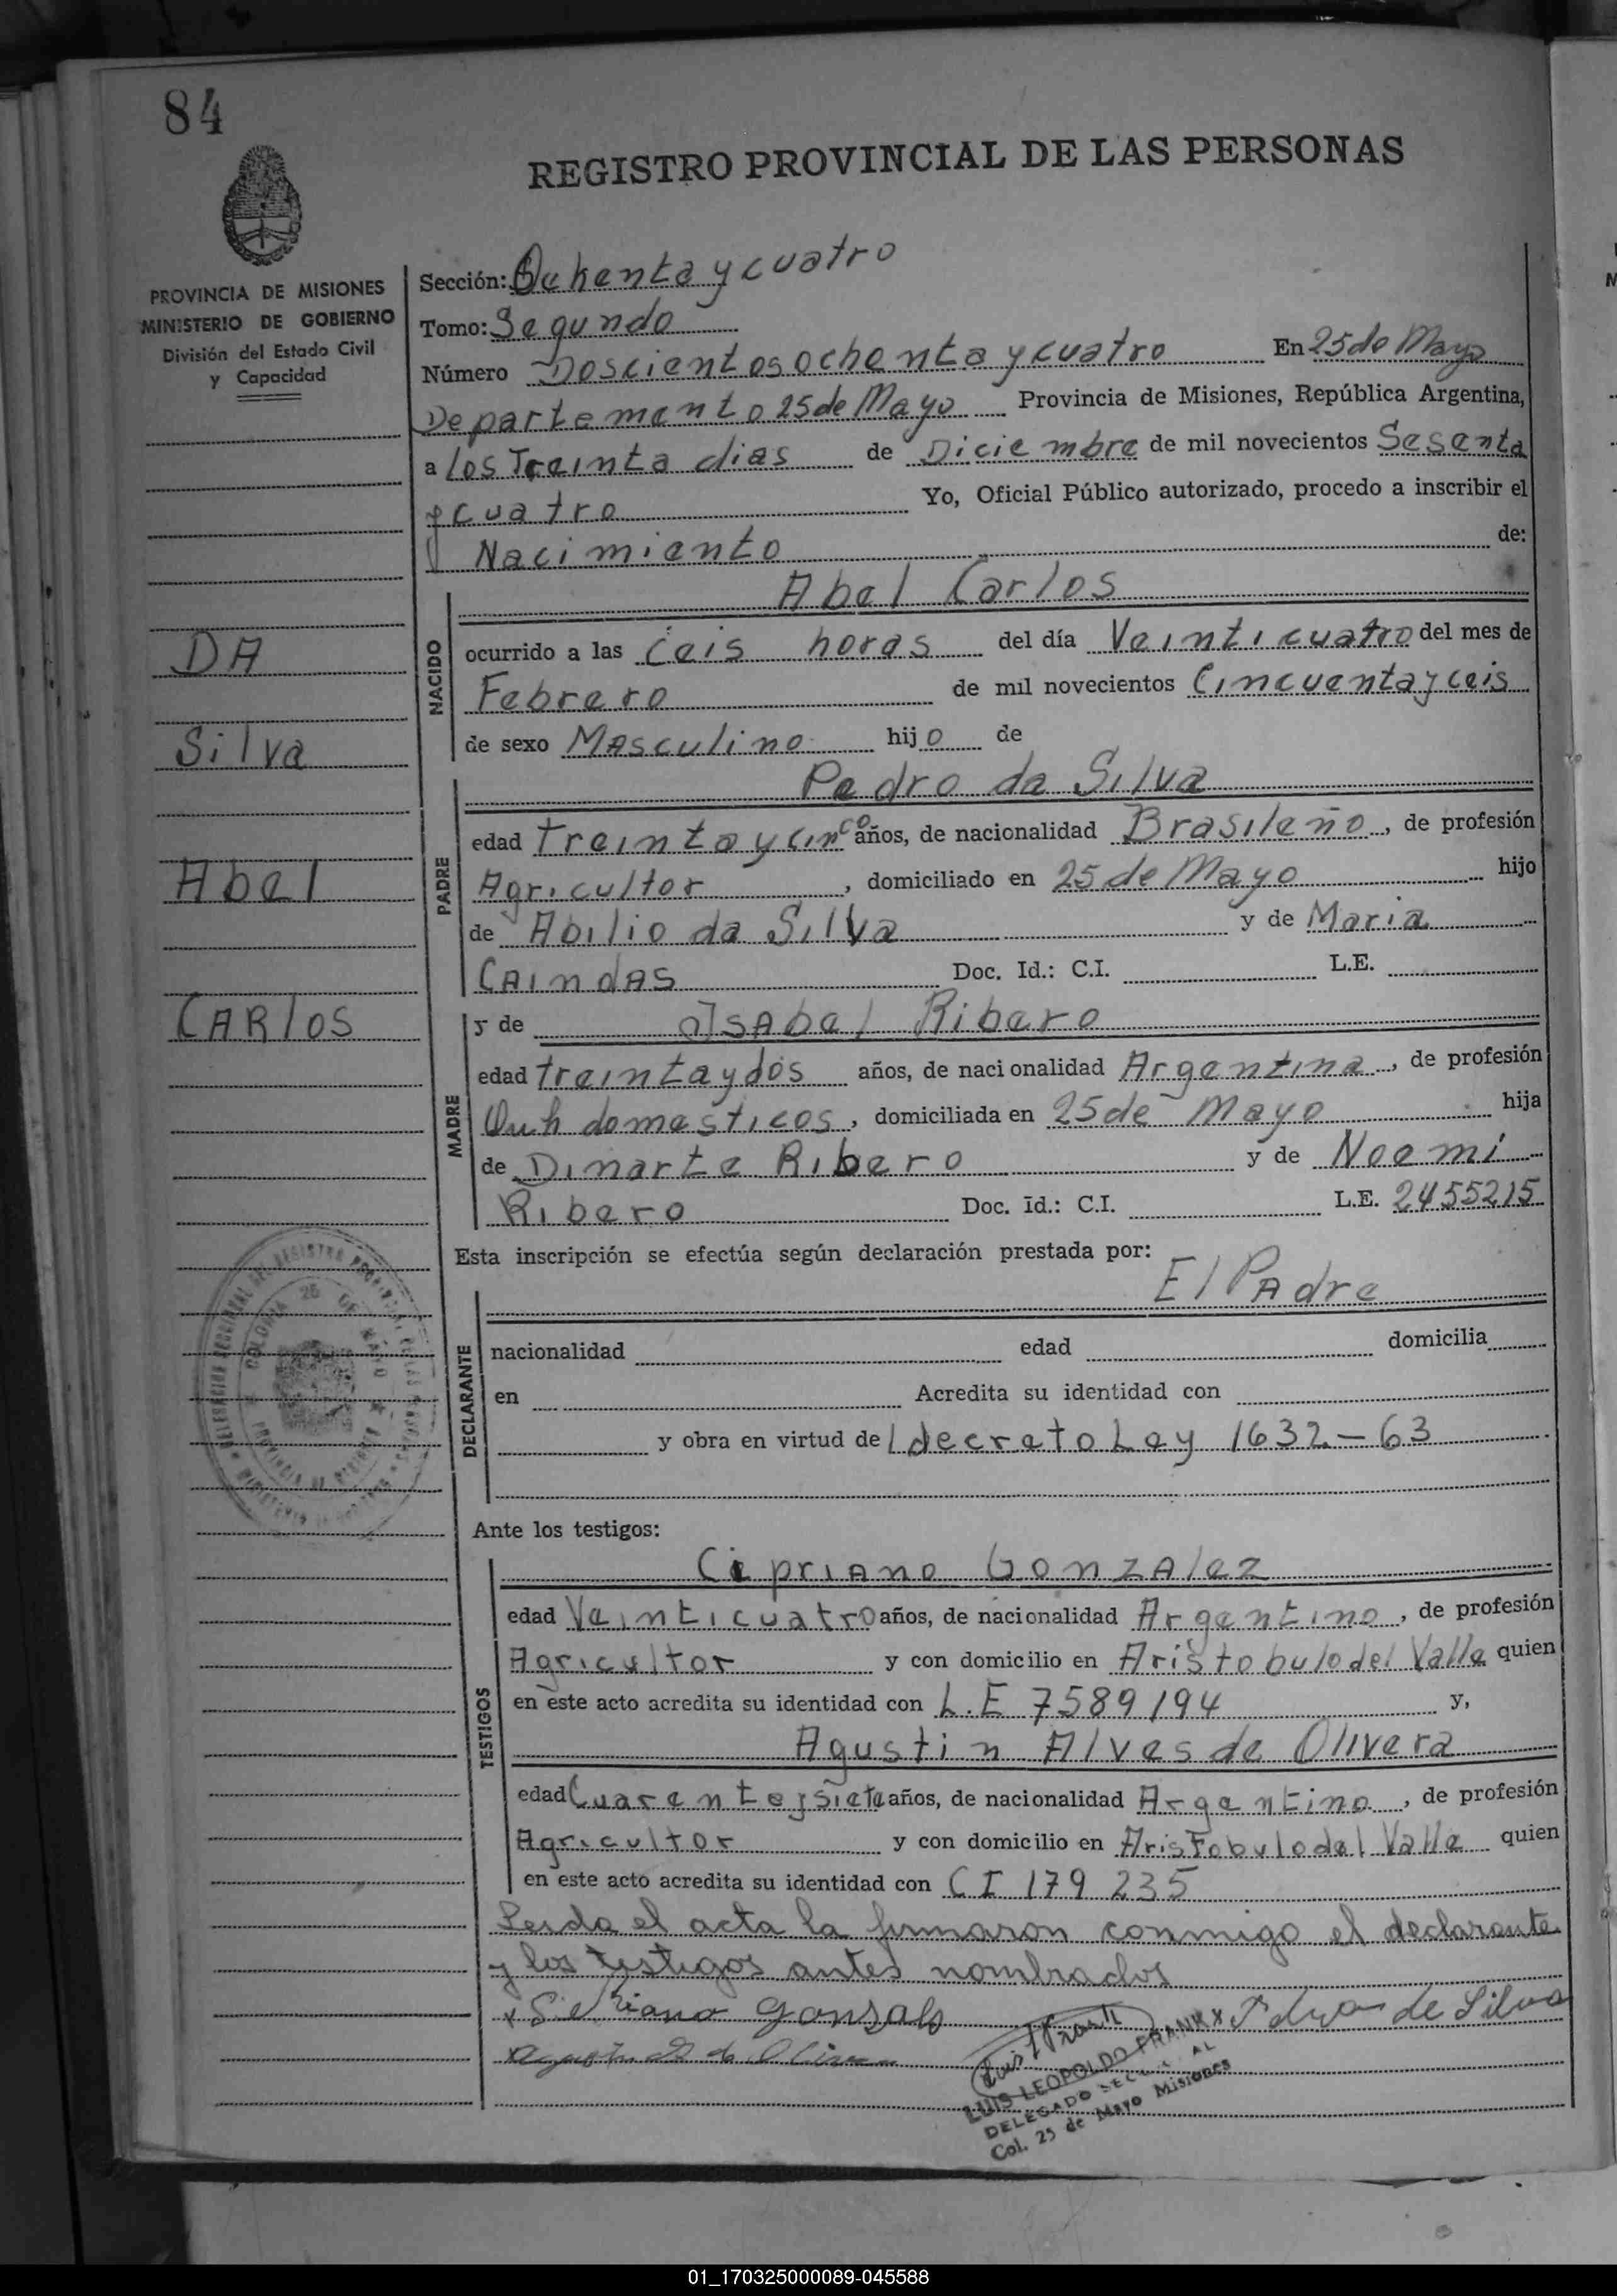 84
REGISTRO PROVINCIAL DE LAS PERSONAS
PROVINCIA DE MISIONES
MINISTERIO DE GOBIERNO
División del Estado Civil
y Capacidad
DA
Silva
Abel
CARlos
Sección: Ochenta y cuatro
Tomo: Segundo
Número Doscientos ochenta y cuatro En 25 de Mayo
Departamento 25 de Mayo Provincia de Misiones, República Argentina,
a los Treinta dias de Diciembre de mil novecientos Sesenta
y cuatro Yo, Oficial Público autorizado, procedo a inscribir el
Nacimiento de:
NACIDO
Abel Carlos
ocurrido a las ceis horas del día Veinticuatro del mes de
Febrero de mil novecientos Cincuenta y ceis
de sexo Masculino hijo de
PADRE
Pedro da Silva
edad treinta y cinco años, de nacionalidad Brasileño, de profesión
Agricultor, domiciliado en 25 de Mayo hijo
de Abilio da Silva y de Maria
CAindAS Doc. Id.: C.I. L.E.
MADRE
y de Isabel Ribero
edad treinta y dos años, de nacionalidad Argentina, de profesión
Quh domesticos, domiciliada en 25 de Mayo hija
de Dinarte Ribero y de Noemi
Ribero Doc. Id.: C.I. L.E. 2455215
Esta inscripción se efectúa según declaración prestada por:
El PAdre
DECLARANTE
nacionalidad edad domicilia
en Acredita su identidad con
y obra en virtud del decreto Ley 1632-63
Ante los testigos:
TESTIGOS
Cipriano Gonzalez
edad Veinticuatro años, de nacionalidad Argentino, de profesión
Agricultor y con domicilio en Aristobulo del Valle quien
en este acto acredita su identidad con L.E 7589194 y,
Agustin Alves de Olivera
edad Cuarenta y siete años, de nacionalidad Argentino, de profesión
Agricultor y con domicilio en Aristobulo del Valle quien
en este acto acredita su identidad con CI 179 235
Leida el acta la firmaron conmigo el declarante
y los testigos antes nombrados
Gonzale
de Silva
LUIS LEOPOLDO FRANK
DELEGADO
Col. 25 de Mayo Misiones
COLONIA 25 DE MAYO
PROVINCIA DE MISIONES
01_170325000089-045588